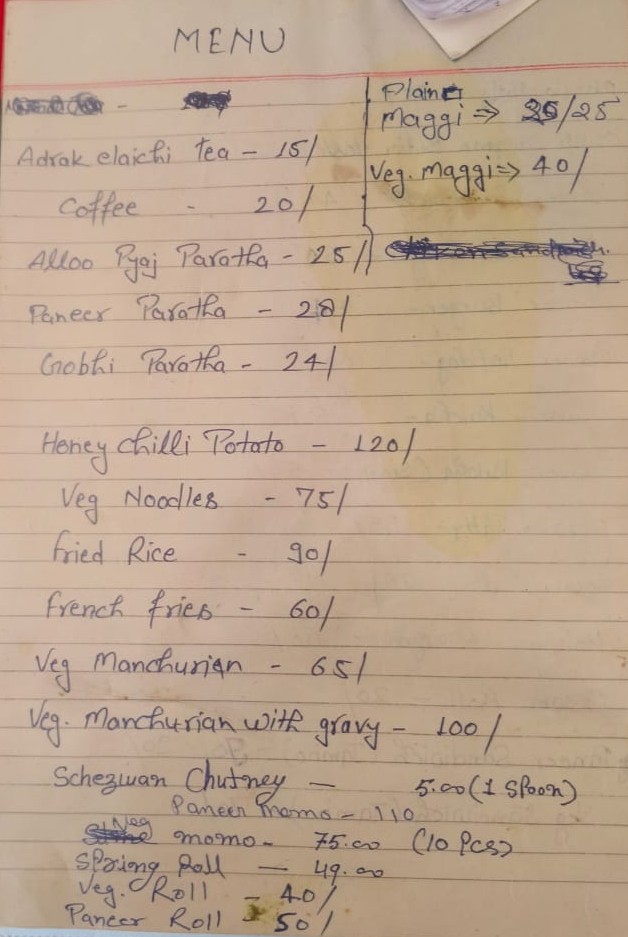 MENU
Plain
Maggi => 25/25
Adrak elaichi tea - 15/
Veg. Maggi => 40/
Coffee - 20/
Alloo Pyaj Paratha - 25/
Paneer Paratha - 28/
Gobhi Paratha - 24/
Honey chilli Potato - 120/
Veg Noodles - 75/
Fried Rice - 90/
French fries - 60/
Veg Manchurian - 65/
Veg. Manchurian with gravy - 100/
Schezwan Chutney — 5.00 (1 Spoon)
Paneer momo - 110
Veg momo - 75.00 (10 Pcs)
Spring Roll — 49.00
Veg. Roll - 40/
Paneer Roll - 50/